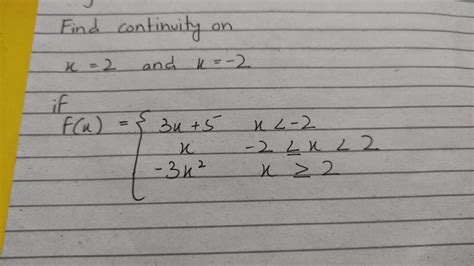 Find continuity on
x = 2 and x = -2
if
f(x) = { 3x + 5 x < -2
x -2 ≤ x < 2
-3x² x ≥ 2